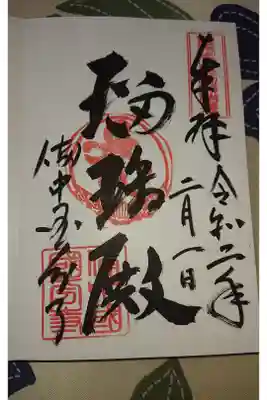 奉拝 令和二年
二月一日
瑠璃殿
備中国分寺